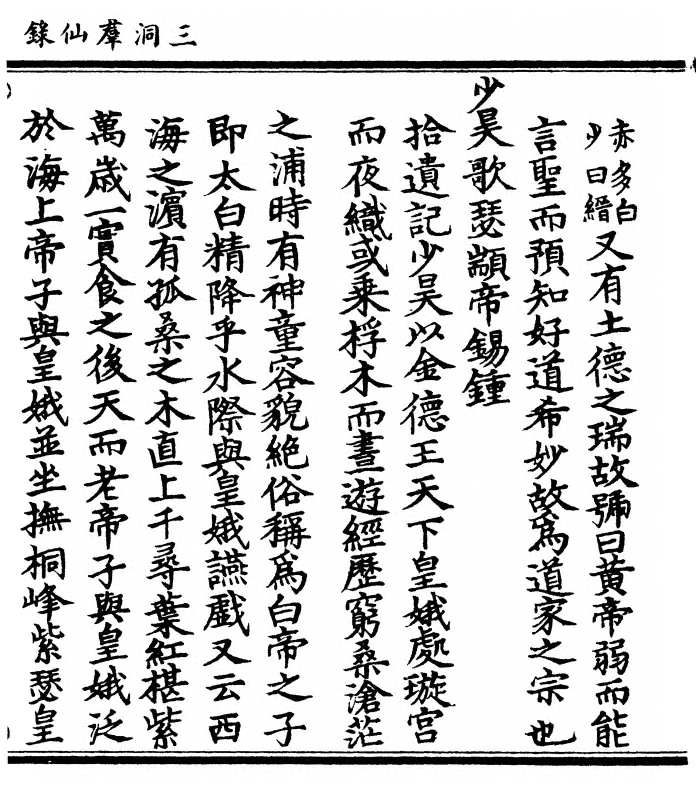 三洞羣仙錄
赤多白少曰縉又有土德之瑞故號曰黃帝弱而能
言聖而預知好道希妙故爲道家之宗也
少昊歌瑟顓帝錫鍾
拾遺記少昊以金德王天下皇娥處璇宮
而夜織或乗桴木而晝遊經歷窮桑滄茫
之浦時有神童容貌絕俗稱爲白帝之子
即太白精降乎水際與皇娥讌戲又云西
海之濵有孤桑之木直上千尋葉紅椹紫
萬歲一實食之後天而老帝子與皇娥泛
於海上帝子與皇娥並坐撫桐峰紫瑟皇